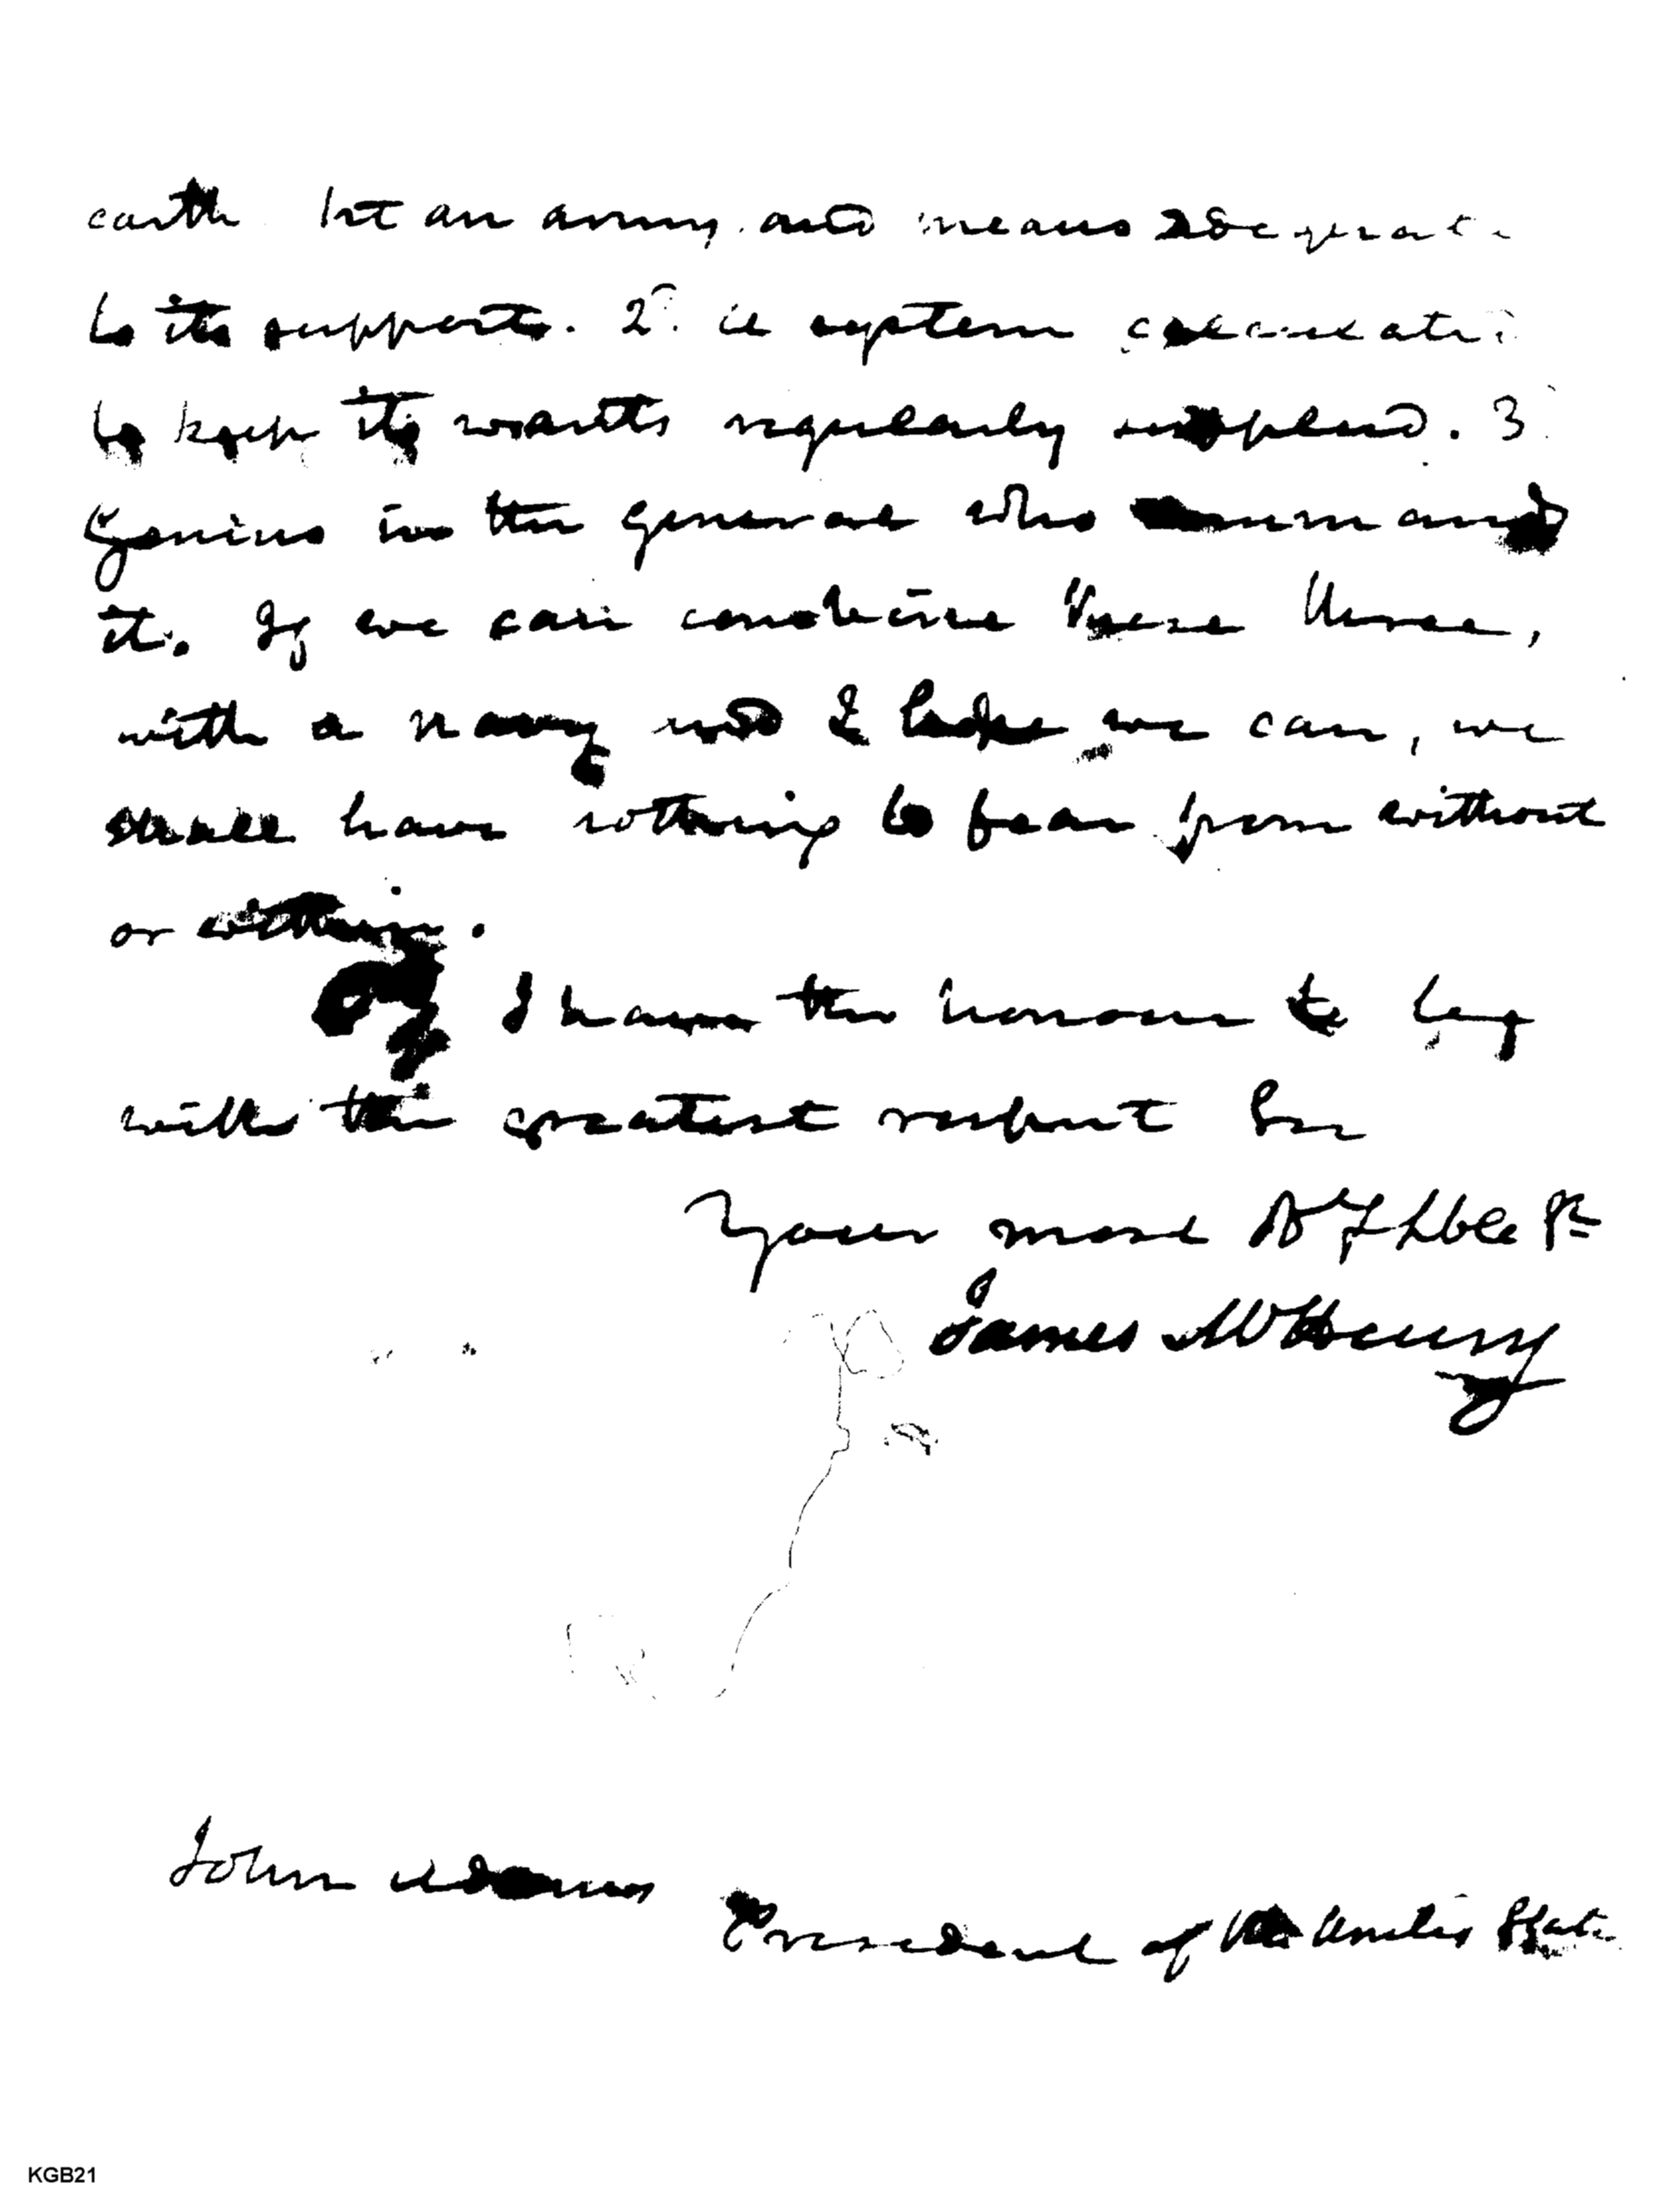 earth 1st an army, and means adequate
to its support. 2d. a system calculated
to keep its wants regularly supplied. 3
Genius in the general who command
it. If we can combine these three,
with a navy and I hope we can, we
shall have nothing to fear from without
or within.
I have the honour to be
with the greatest respect Sir
Your most Ob. & hble St
James McHenry
John Adams
President of the United States
KGB21